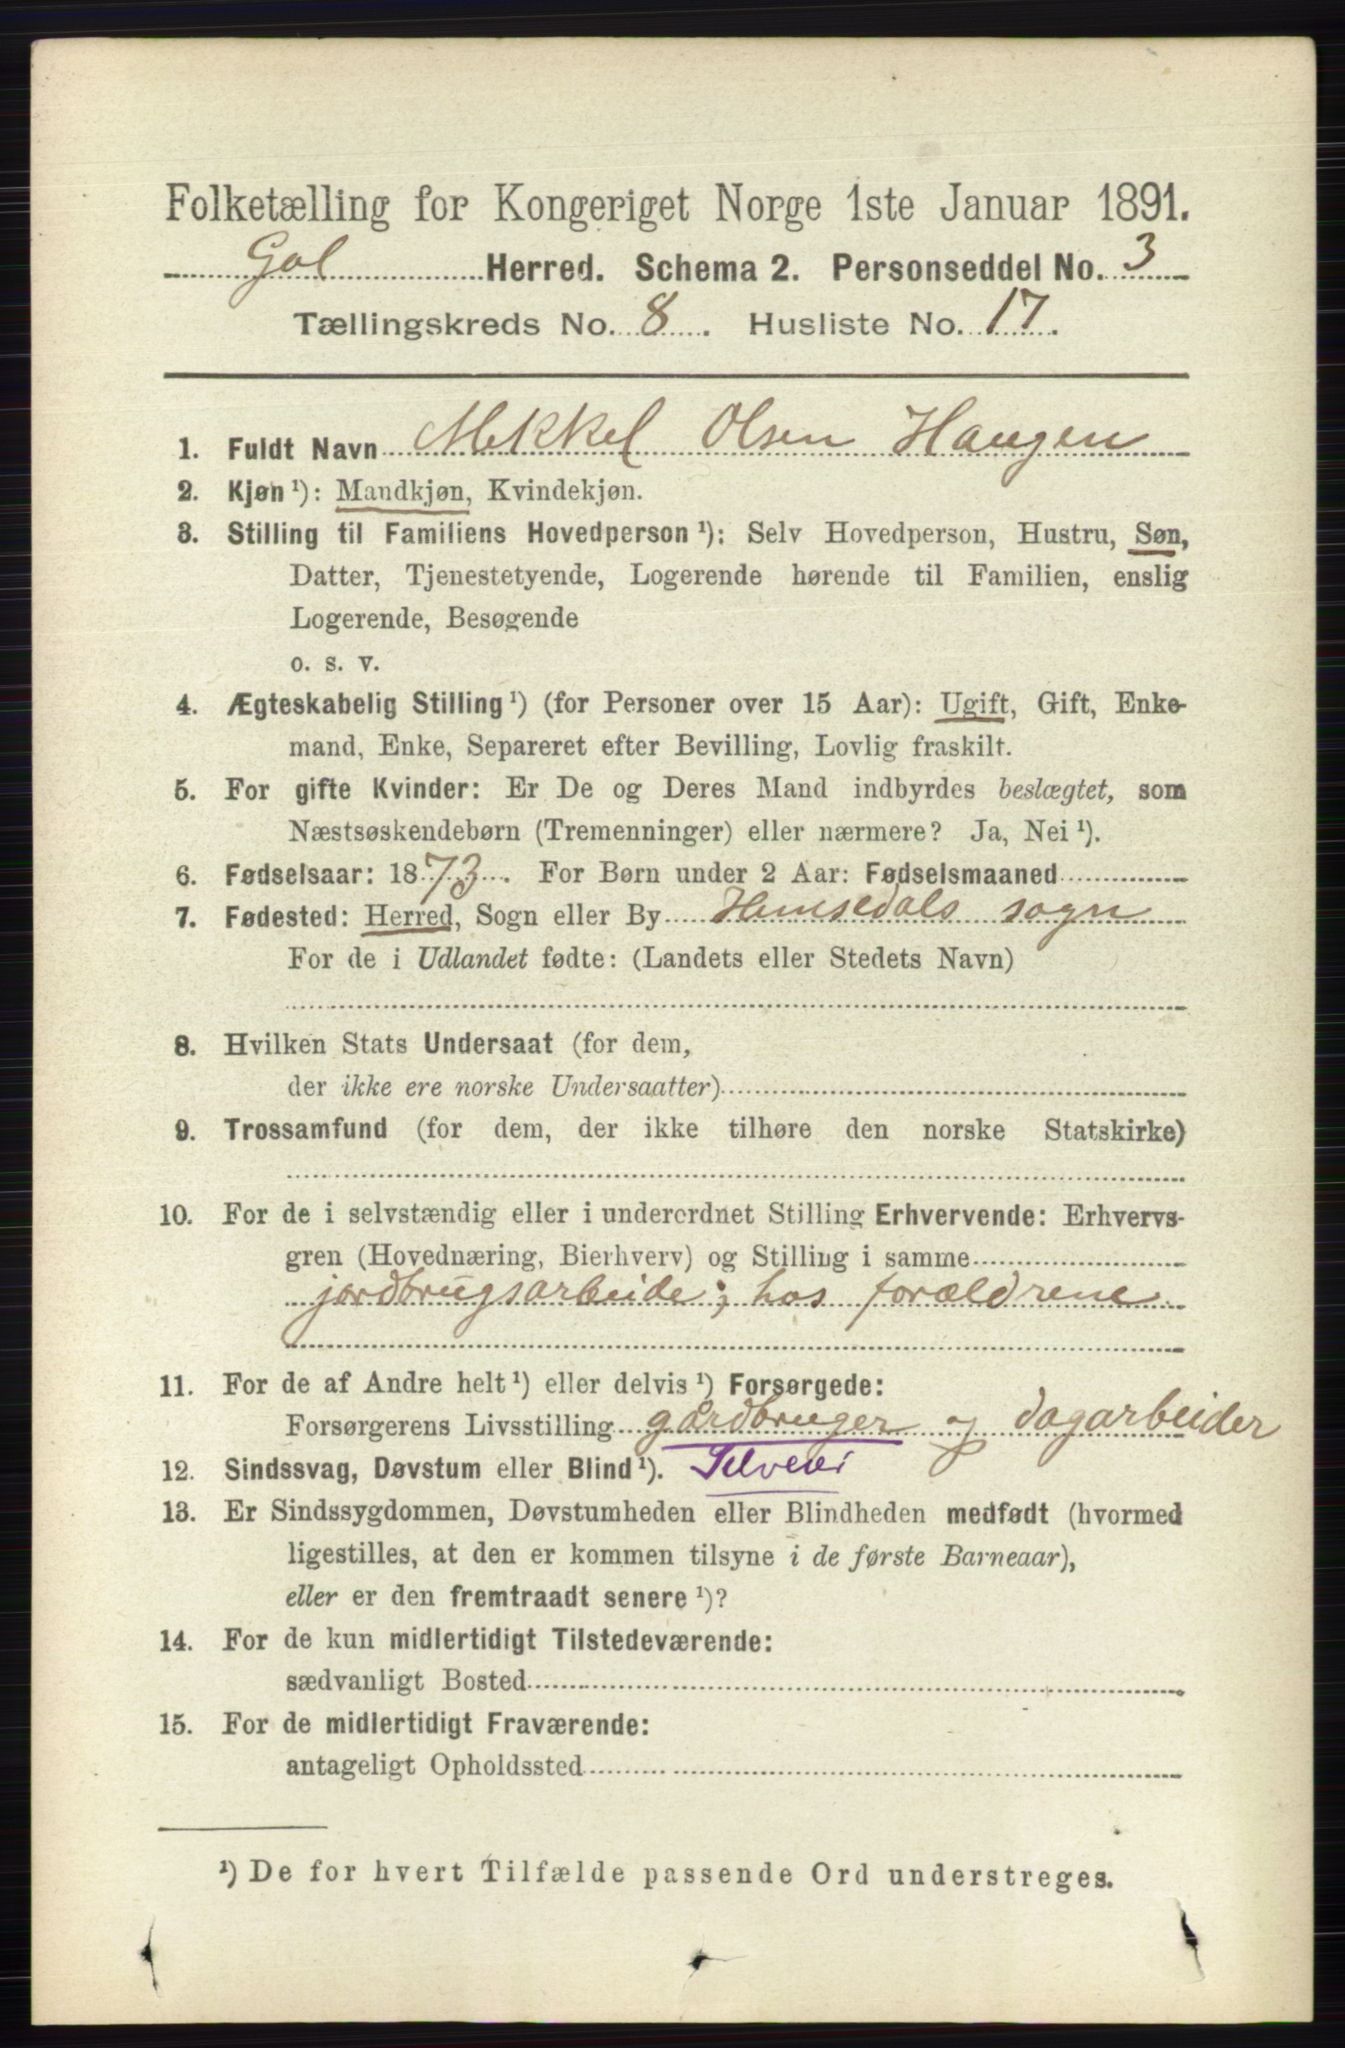 Folketælling for Kongeriget Norge 1ste Januar 1891.
Gol Herred. Schema 2. Personseddel No. 3
Tællingskreds No. 8. Husliste No. 17.
1. Fuldt Navn Mekkel Olsen Haugen
2. Kjøn ¹): Mandkjøn, Kvindekjøn.
3. Stilling til Familiens Hovedperson ¹): Selv Hovedperson, Hustru, Søn,
Datter, Tjenestetyende, Logerende hørende til Familien, enslig
Logerende, Besøgende
o. s. v.
4. Ægteskabelig Stilling ¹) (for Personer over 15 Aar): Ugift, Gift, Enke-
mand, Enke, Separeret efter Bevilling, Lovlig fraskilt.
5. For gifte Kvinder: Er De og Deres Mand indbyrdes beslægtet, som
Næstsøskendebørn (Tremenninger) eller nærmere? Ja, Nei ¹).
6. Fødselsaar: 1873. For Børn under 2 Aar: Fødselsmaaned
7. Fødested: Herred, Sogn eller By Hemsedals sogn
For de i Udlandet fødte: (Landets eller Stedets Navn)
8. Hvilken Stats Undersaat (for dem,
der ikke ere norske Undersaatter)
9. Trossamfund (for dem, der ikke tilhøre den norske Statskirke)
10. For de i selvstændig eller i underordnet Stilling Erhvervende: Erhvervs-
gren (Hovednæring, Bierhverv) og Stilling i samme
jordbrugsarbeide; hos forældrene
11. For de af Andre helt ¹) eller delvis ¹) Forsørgede:
Forsørgerens Livsstilling gårdbruger og dagarbeider
12. Sindssvag, Døvstum eller Blind ¹). Selveier
13. Er Sindssygdommen, Døvstumheden eller Blindheden medfødt (hvormed
ligestilles, at den er kommen tilsyne i de første Barneaar),
eller er den fremtraadt senere ¹)?
14. For de kun midlertidigt Tilstedeværende:
sædvanligt Bosted
15. For de midlertidigt Fraværende:
antageligt Opholdssted
¹) De for hvert Tilfælde passende Ord understreges.